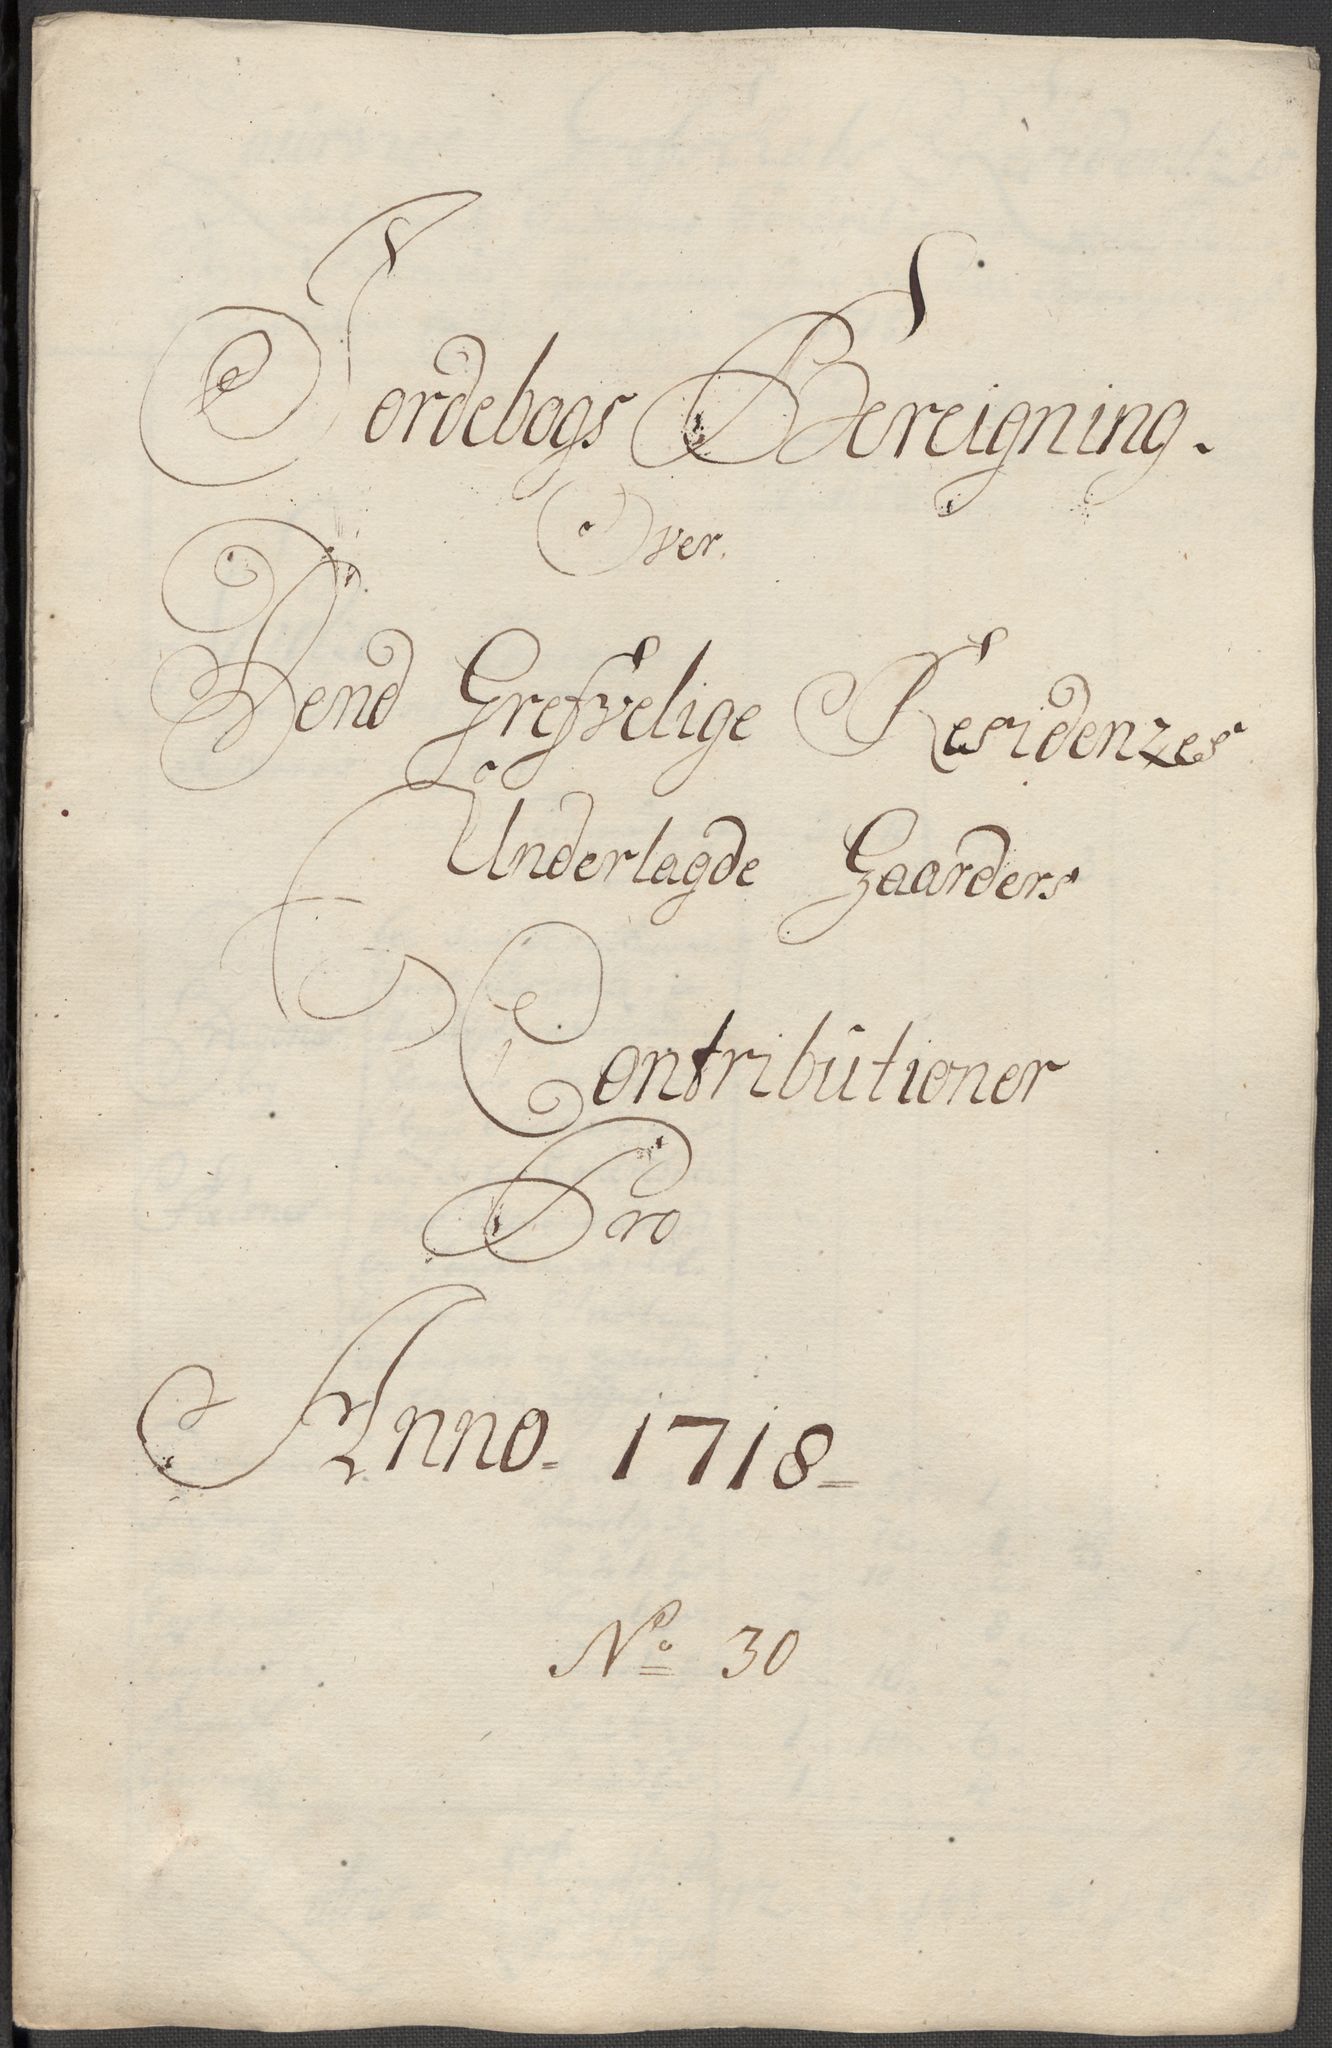 Jordebogs Bereigning.
Over.
Dend Grefvelige Residenzes
Underlagde Gaarders
Contribûtioner
Pro
Anno 1718
No 30